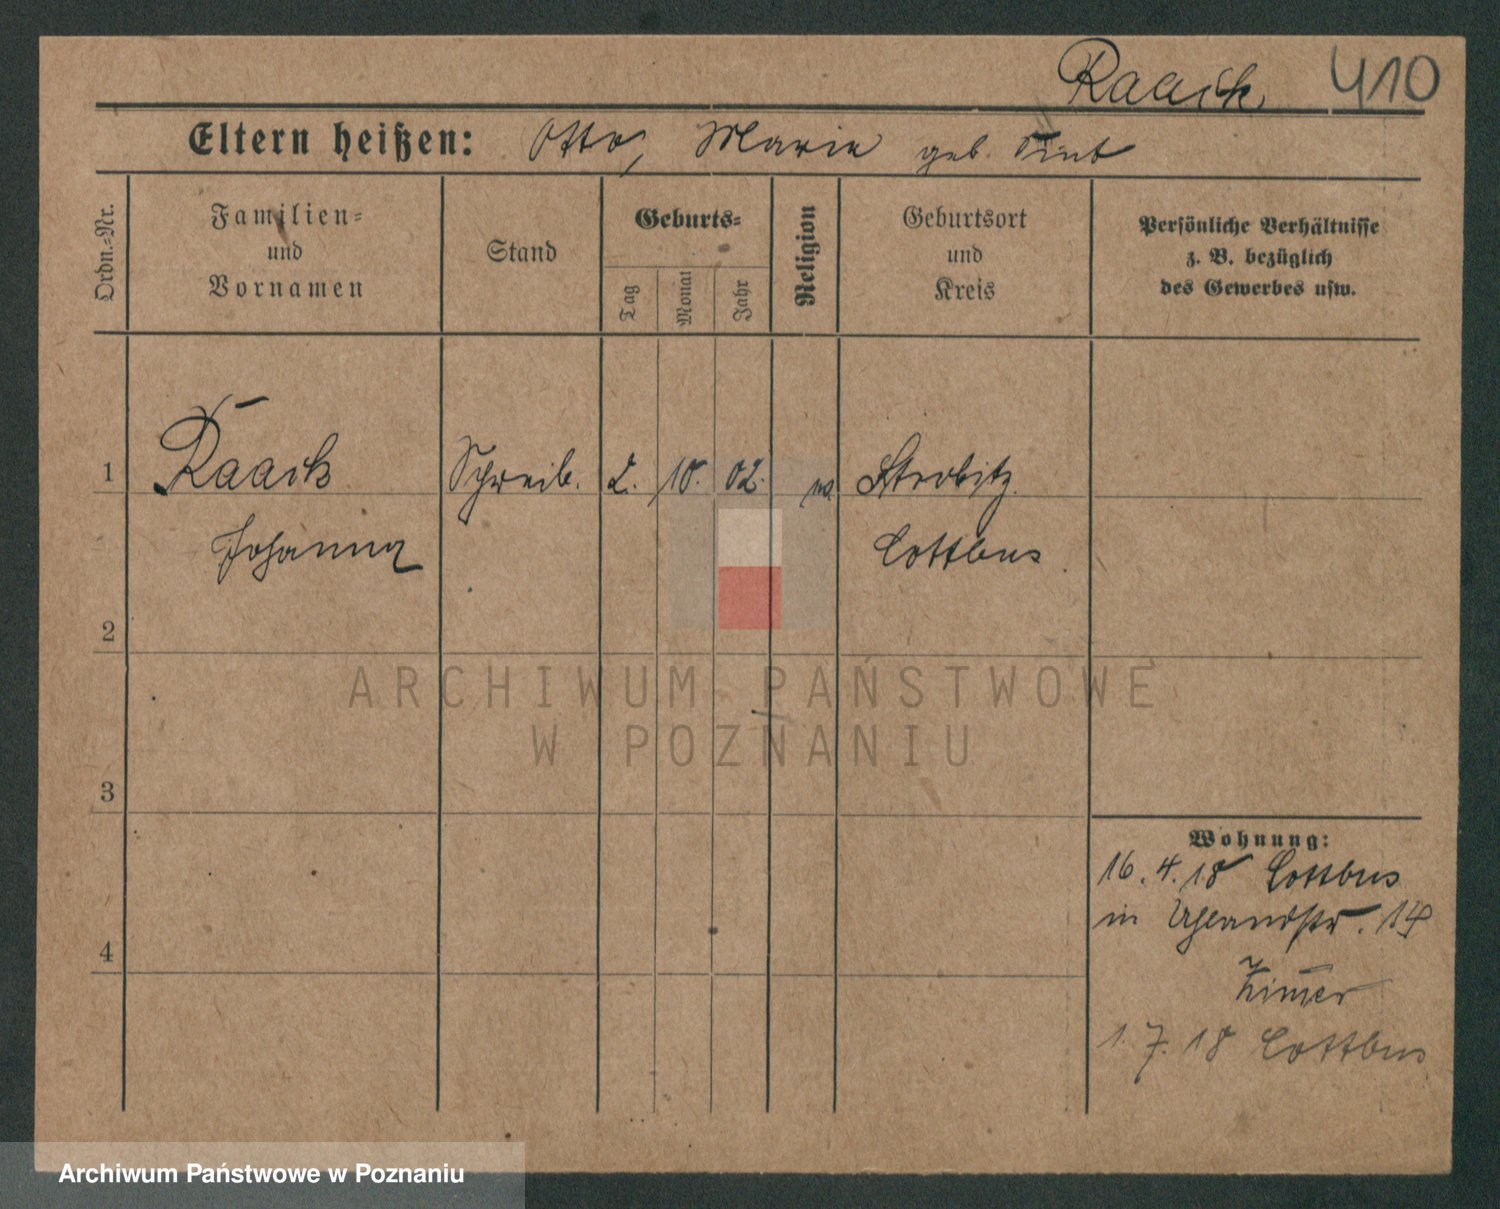 Raack 410
Eltern heißen: Otto, Marie geb.
Ordn.=Nr.
Familien=
und
Vornamen
Stand
Geburts=
Tag
Monat
Jahr
Religion
Geburtsort
und
Kreis
Persönliche Verhältnisse
z. B. bezüglich
des Gewerbes usw.
1 Raack Schreib. 2. 10. 02. Strobitz
Johanna Cottbus
2
3
4
Wohnung:
16.4.18 Cottbus
in Uhlandstr. 14
Zimer
1.7.18 Cottbus
ARCHIWUM PAŃSTWOWE
W POZNANIU
Archiwum Państwowe w Poznaniu